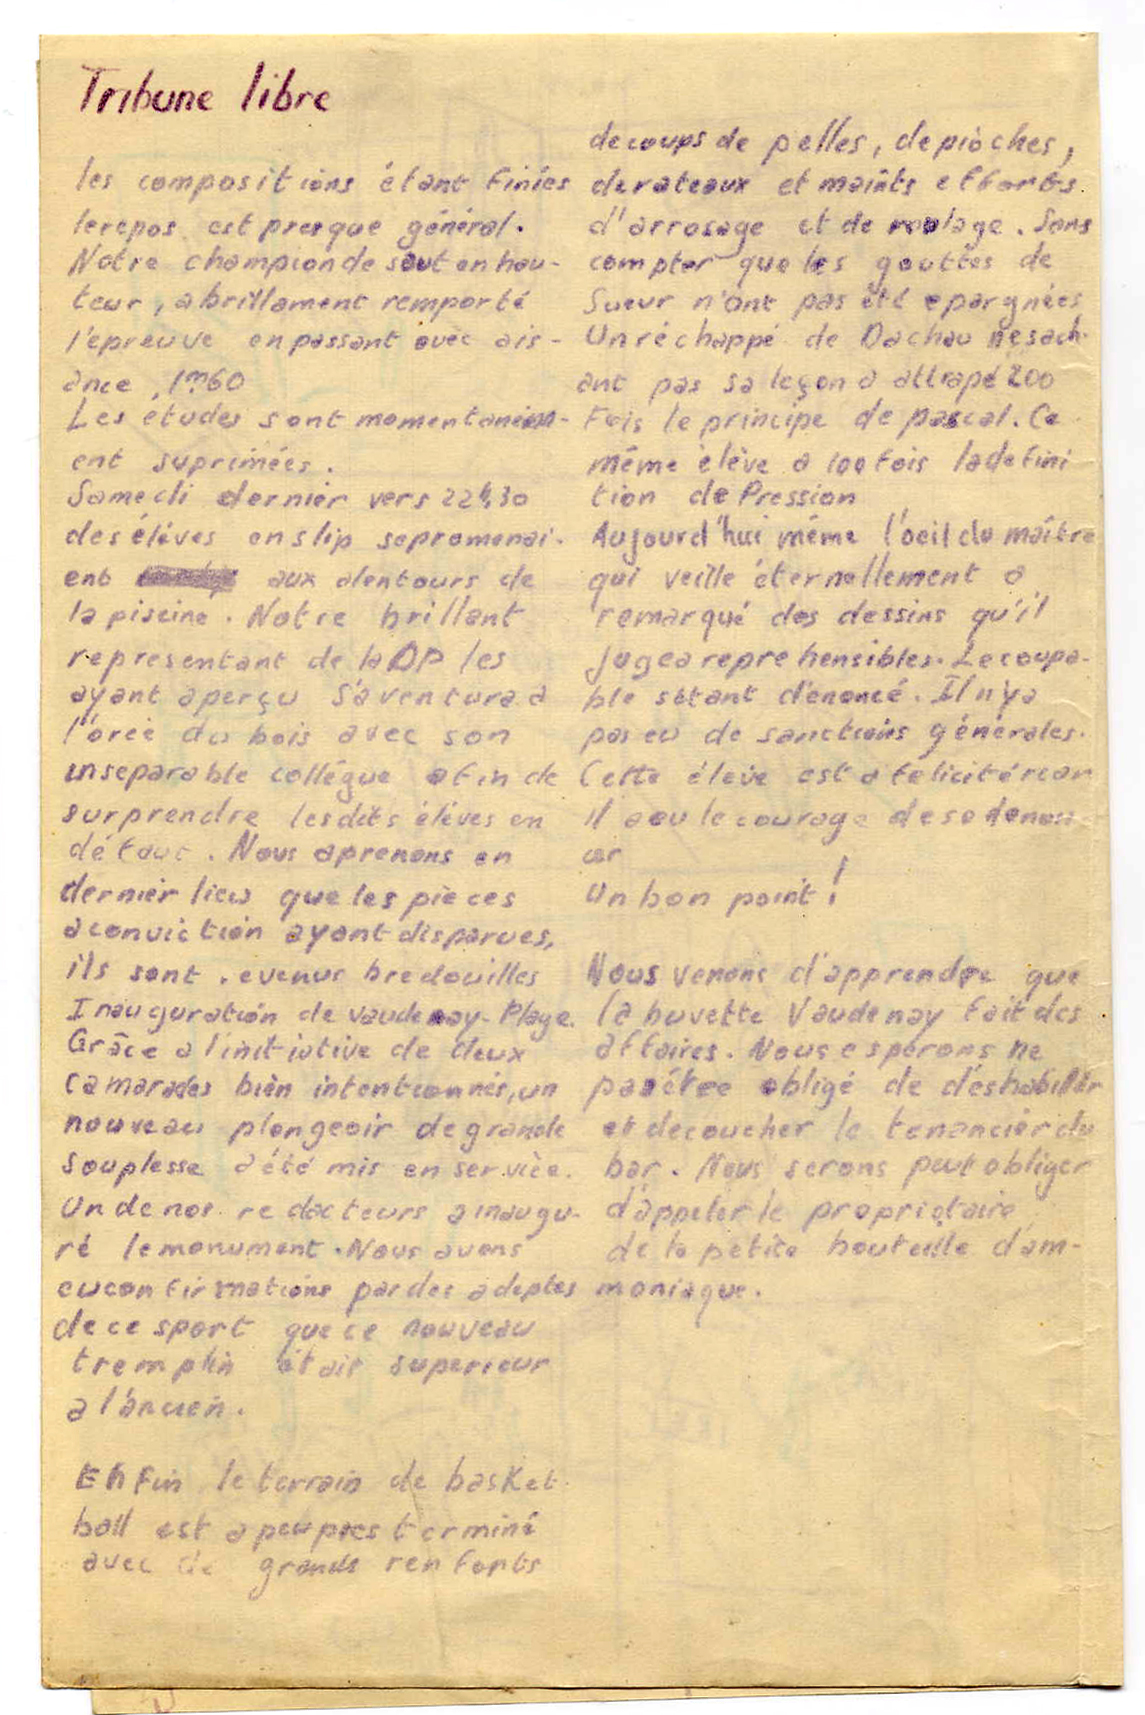 Tribune libre
les compositions étant finies
le repos est presque général.
Notre champion de saut en hau-
teur, a brillament remporté
l'épreuve en passant avec ais-
ance, 1m60
Les études sont momentaném-
ent suprimées.
Samedi dernier vers 22h30
des élèves en slip se promenai-
ent aux alentours de
la piscine. Notre brillant
representant de la DP les
ayant aperçu s'aventura à
l'orée du bois avec son
inseparable collégue afin de
surprendre lesdits élèves en
défaut. Nous aprenons en
dernier lieu que les pièces
a conviction ayant disparues,
ils sont revenus bredouilles
Inauguration de Vaudenay-Plage.
Grâce a l'initiative de deux
camarades bien intentionnés, un
nouveau plongeoir de grande
souplesse a été mis en service.
Un de nos redacteurs a inaugu-
ré le monument. Nous avons
eu confirmations par des adeptes
de ce sport que ce nouveau
tremplin était superieur
a l'ancien.
Enfin le terrain de basket-
ball est a peu pres terminé
avec de grands renforts
de coups de pelles, de pioches,
de rateaux et maints efforts
d'arrosage et de roulage. Sans
compter que les gouttes de
Sueur n'ont pas été epargnées
Un réchappé de Dachau ne sach-
ant pas sa leçon a attrapé 200
Fois le principe de pascal. Ce
même élève a 100 fois la defini
tion de Pression
Aujourd'hui même l'oeil du maître
qui veille éternellement a
remarqué des dessins qu'il
jugea reprehensibles. Le coupa-
ble s'etant dénoncé. Il n'y a
pas eu de sanctions générales.
Cette éleve est a féliciter car
il a eu le courage de se denon
cer
Un bon point!
Nous venons d'apprendre que
la buvette Vaudenay fait des
affaires. Nous esperons ne
pas étre obligé de déshabiller
et de coucher le tenancier du
bar. Nous serons peut obliger
d'appeler le propriétaire
de la petite bouteille d'am-
moniaque.